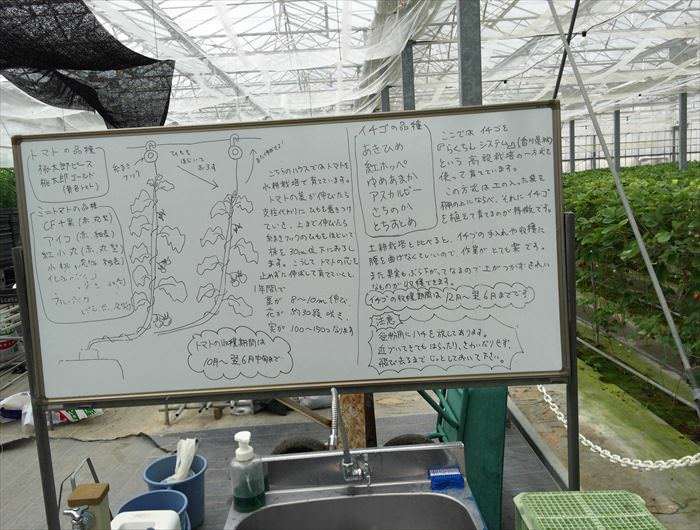 トマトの品種
桃太郎ピース
桃太郎ゴールド
(黄色トマト)
ミニトマトの品種
CF千果(赤 丸型)
アイコ(赤 細長)
紅小丸(赤 丸型)
小桃
糸まき
フック
ひもを
ほじいて
おろす
こちらのハウスではトマトを
水耕栽培で育てています。
トマトの茎が伸びたら
支柱代わりにひもを巻きつけ
ていき、上まで伸びたら
糸まきフックのひもをほどいて
横を30cm位下におろし
ます。こうしてトマトの花を
止めずに伸ばして育てていくと、
1年間で
茎が 8~10m伸び
花が 約30段 咲き、
実が 100~150コなります
トマトの収穫期間は
10月~翌6月中旬まで
イチゴの品種
あきひめ
紅ホッペ
ゆめあまか
アスカルビー
さちのか
とちおとめ
ここでは イチゴを
『らくちんシステム』(香川県㈱)
という 高設栽培の一方式を
使って育てています。
この方式は土の入った袋を
棚の上にならべ、それにイチゴ
を植えて育てるのが特徴です。
土耕栽培と比べると、イチゴの手入れや収穫に
腰を曲げなくていいので、作業が とても楽です。
また果実もぶら下がってなるので 土がつかず きれい
なものが収穫できます。
イチゴの収穫期間は 12月~翌6月までです
注意
受粉用にハチを放しております。
近づいてきても はらったり、さわいだりせず
飛び去るまで じっとしておいて下さい。